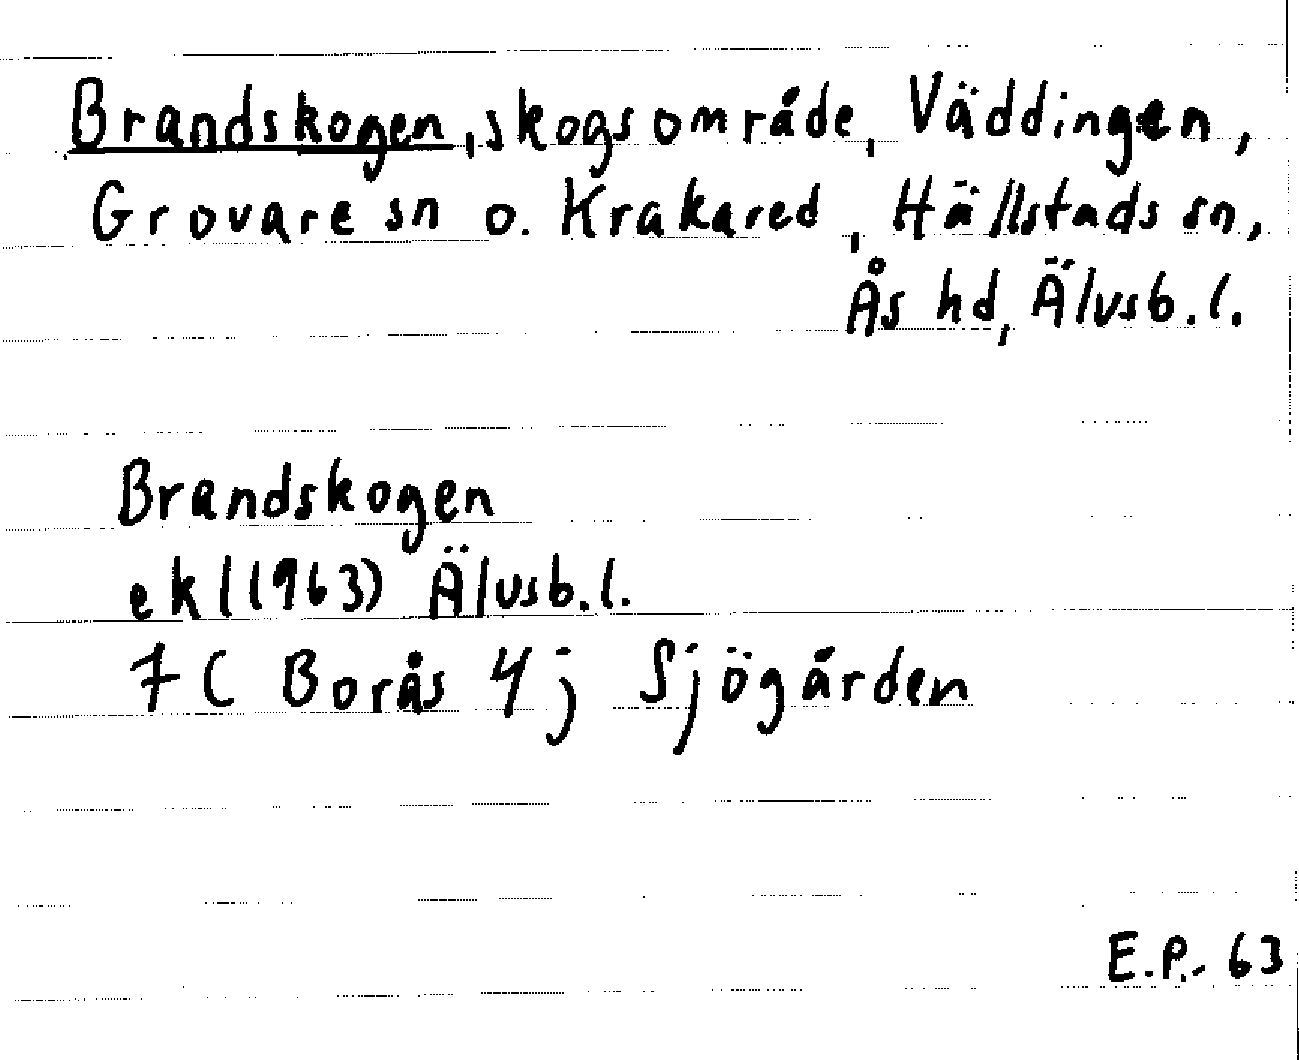 Brandskogen, skogsområde, Väddingen,
Grovare sn o. Krakared, Hällstads sn,
Ås hd, Älvsb. l.
Brandskogen
ek (1963) Älvsb. l.
7 C Borås 4 j Sjögården
E.P.-63